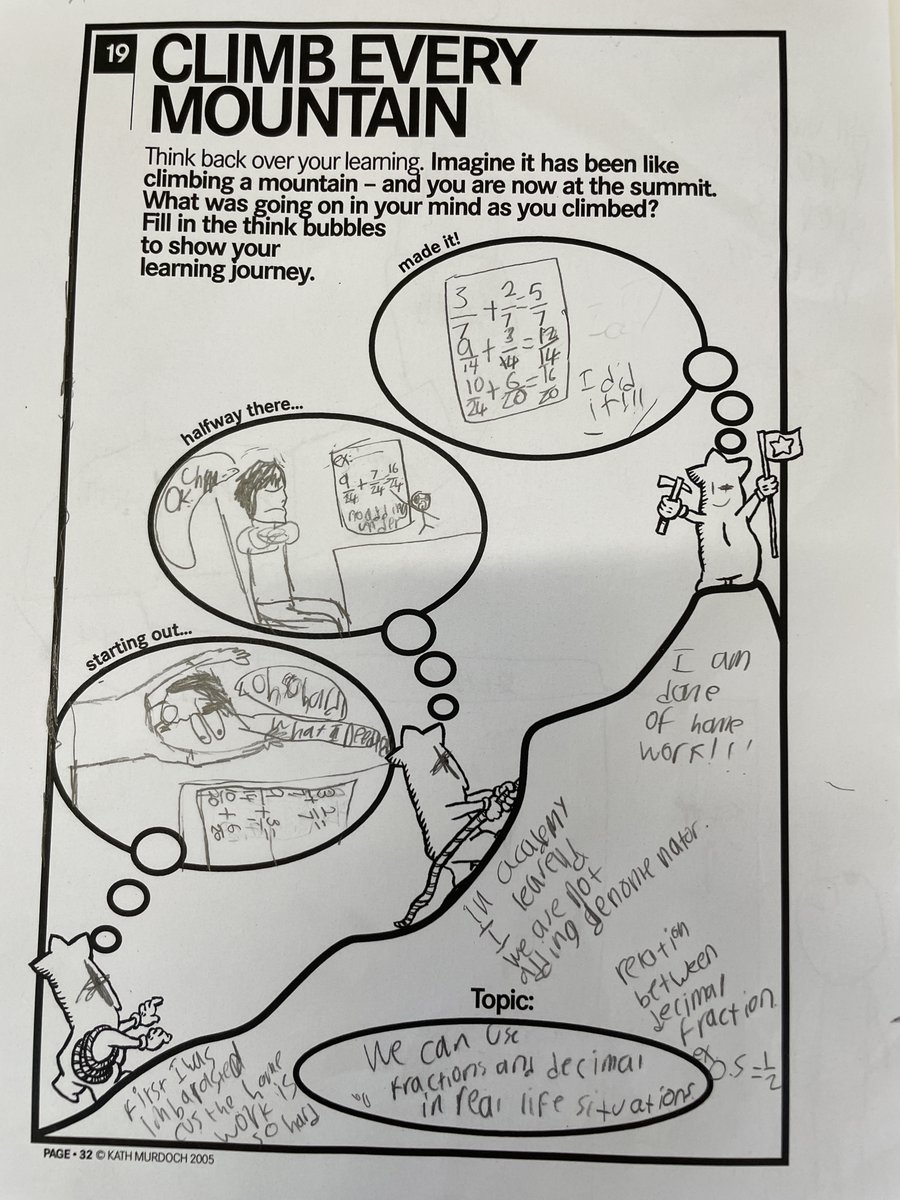 19
CLIMB EVERY
MOUNTAIN
Think back over your learning. Imagine it has been like
climbing a mountain – and you are now at the summit.
What was going on in your mind as you climbed?
Fill in the think bubbles
to show your
learning journey.
made it!
3/7 + 2/7 = 5/7
9/14 + 3/14 = 12/14
10/24 + 6/20 = 16/20
I did
it!!!
halfway there...
OK
ex:
9/24 + 7/24 = 16/24
starting out...
What I
I am
done
of home
work!!!
In academy
I learend
we are not
adding denome nator.
relation
between
decimal
fraction
ex
0.5 = 1/2
Topic:
We can use
fractions and decimal
in real life situations
First I was
Imbarassed
cus the home
work is
so hard
PAGE • 32 © KATH MURDOCH 2005